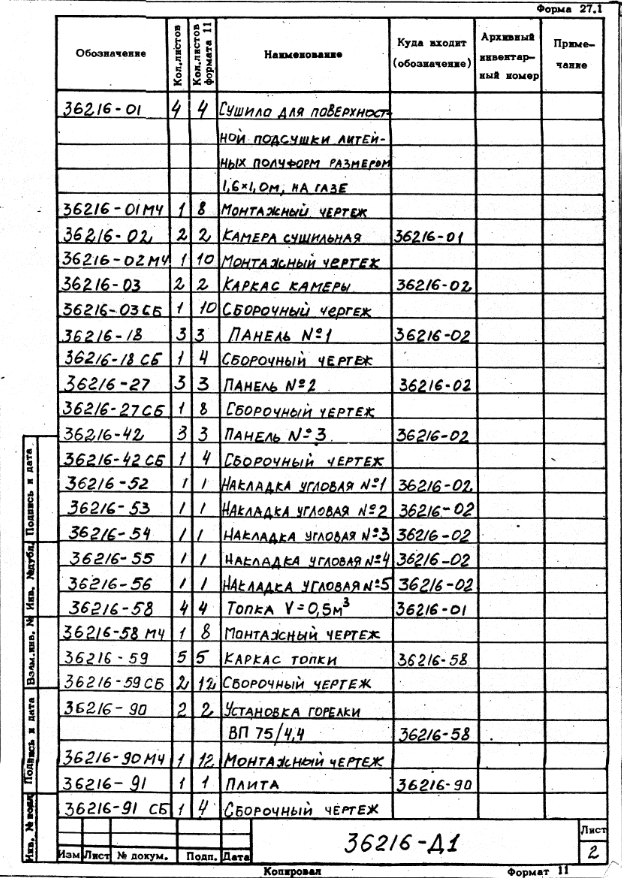 Форма 27.1
Обозначение Кол.листов Кол.листов формата 11 Наименование Куда входит (обозначение) Архивный инвентарный номер Примечание
36216-01 4 4 Сушило для поверхност-
ной подсушки литей-
ных полуформ размером
1,6×1,0м, на газе
36216-01МЧ 1 8 Монтажный чертеж
36216-02 2 2 Камера сушильная 36216-01
36216-02МЧ 1 10 Монтажный чертеж
36216-03 2 2 Каркас камеры 36216-02
36216-03СБ 1 10 Сборочный чертеж
36216-18 3 3 Панель №1 36216-02
36216-18 СБ 1 4 Сборочный чертеж
36216-27 3 3 Панель №2 36216-02
36216-27СБ 1 8 Сборочный чертеж
36216-42 3 3 Панель №3. 36216-02
36216-42 СБ 1 4 Сборочный чертеж
36216-52 1 1 Накладка угловая №1 36216-02
36216-53 1 1 Накладка угловая №2 36216-02
36216-54 1 1 Накладка угловая №3 36216-02
36216-55 1 1 Накладка угловая №4 36216-02
36216-56 1 1 Накладка угловая №5 36216-02
36216-58 4 4 Топка V=0,5м³ 36216-01
36216-58 МЧ 1 8 Монтажный чертеж
36216-59 5 5 Каркас топки 36216-58
36216-59 СБ 2 12 Сборочный чертеж
36216-90 2 2 Установка горелки
ВП 75/4,4 36216-58
36216-90МЧ 1 12 Монтажный чертеж
36216-91 1 1 Плита 36216-90
36216-91 СБ 1 4 Сборочный чертеж
Подпись и дата
Инв. №дубл.
Взам.инв. №
Подпись и дата
Инв. № подл.
Изм Лист № докум. Подп. Дата
36216-Д1
Лист
2
Копировал Формат 11